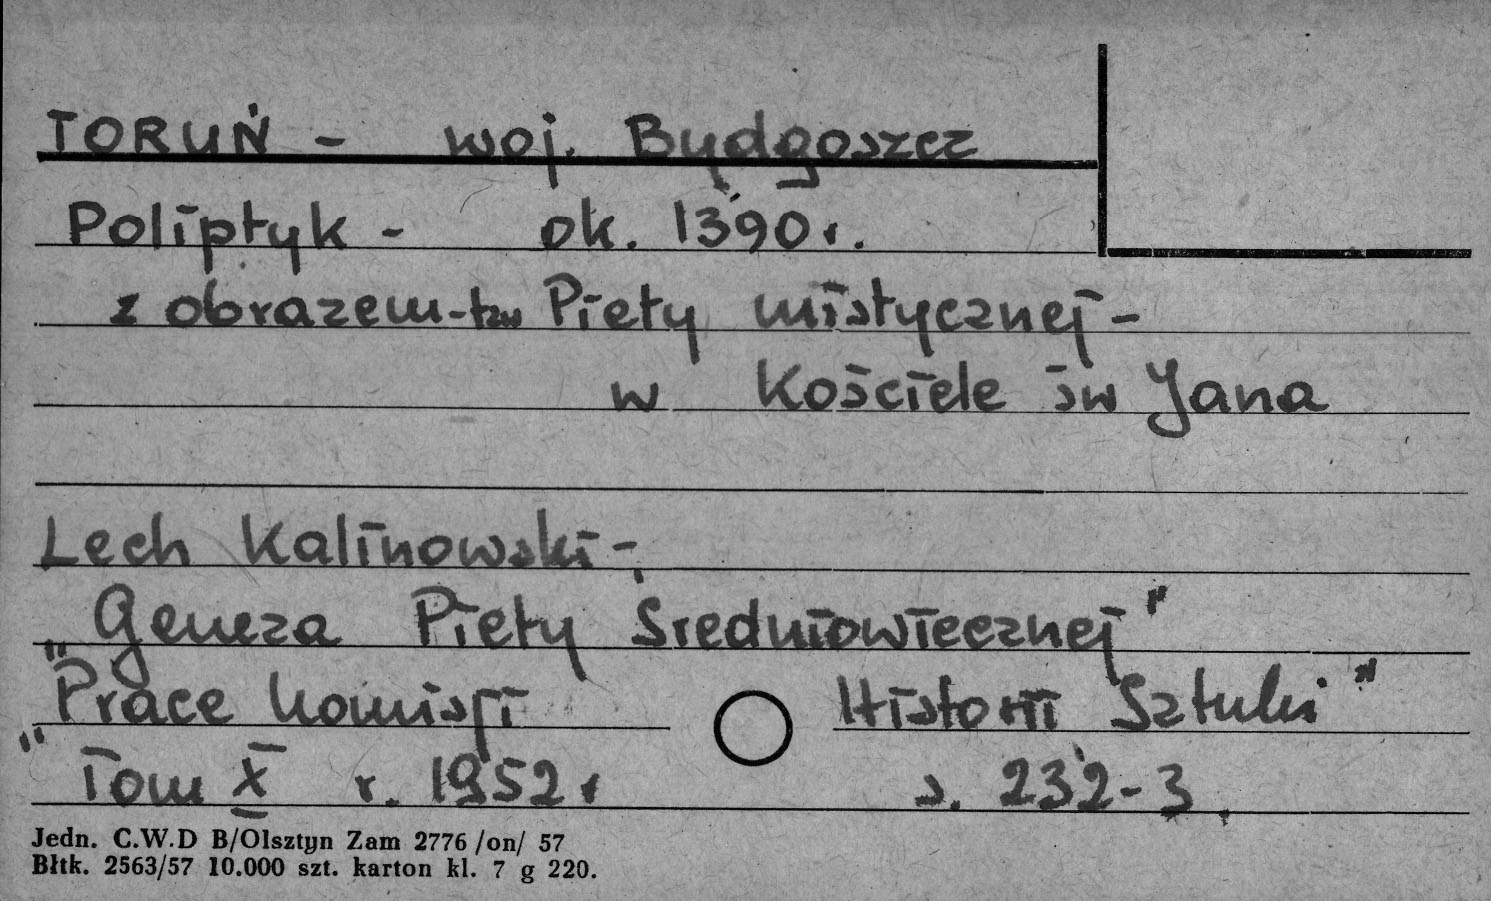 TORUŃ - woj. Bydgoszcz
Poliptyk - ok. 1390 r.
z obrazem - tzw Piety mistycznej -
w Kościele św Jana
Lech Kalinowski -
„Geneza Piety Średniowiecznej"
„Prace Komisji Historii Sztuki"
Tom X r. 1952 r s. 232-3.
Jedn. C.W.D B/Olsztyn Zam 2776 /on/ 57
Błtk. 2563/57 10.000 szt. karton kl. 7 g 220.